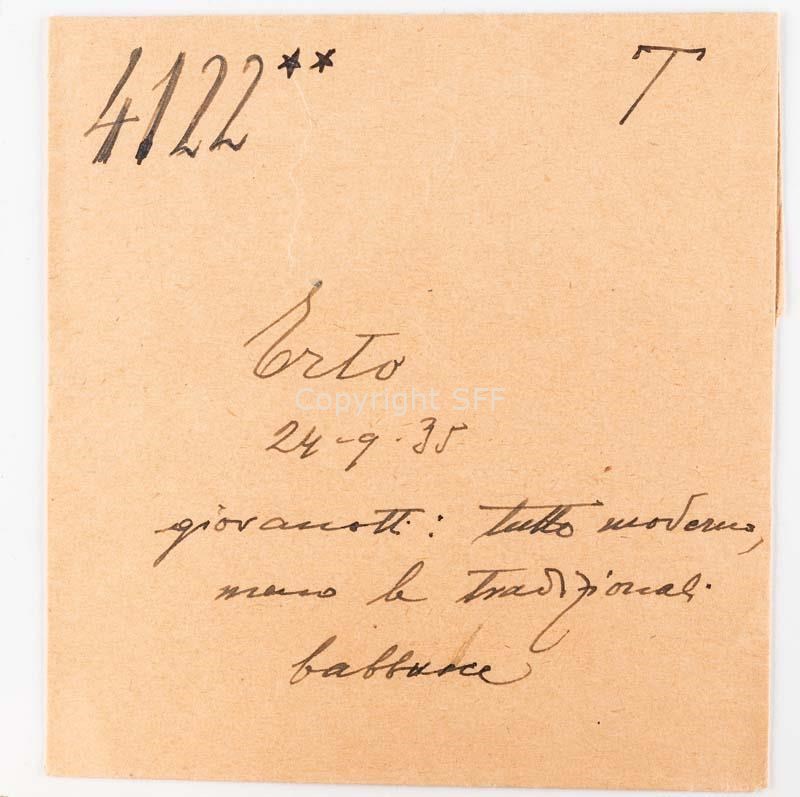 4122** T
Erto
Copyright SFF
24-9-35
giovanotti: tutto moderno,
meno le tradizionali
babbucce